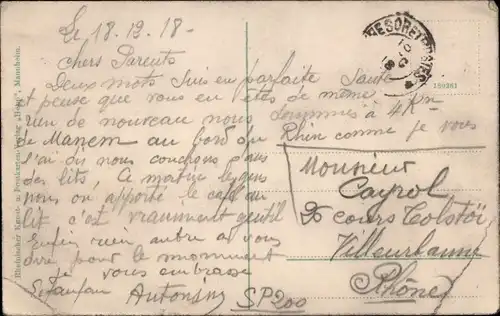 Le 18.12.18-
chers Parents
Deux mots suis en parfaite Santé
et pense que vous en êtes de même
rien de nouveau nous sommes à 4 Km
de Manem au bord du Rhin comme je vous
l'ai dit nous couchons dans
des lits, Ce matin les gens
nous on apporté le café au
lit c'est vraiment gentil
Enfin rien autre a vous
dire pour le momment
je vous embrasse
Antonin
SP200
Monsieur
Cayrol
20 cours Tolstoï
Villeurbanne
Rhône
TRESOR ET POSTES
159261
Rheinischer Kunst- u. Verlag Mannheim.